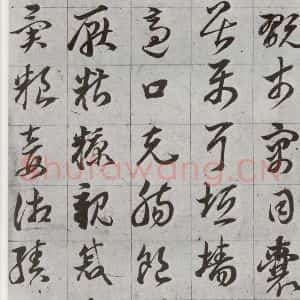 翫市寓目囊
畏屬耳垣墻
適口充腸飽
厭糟糠親戚
異糧妾御績
Shufawang.CN